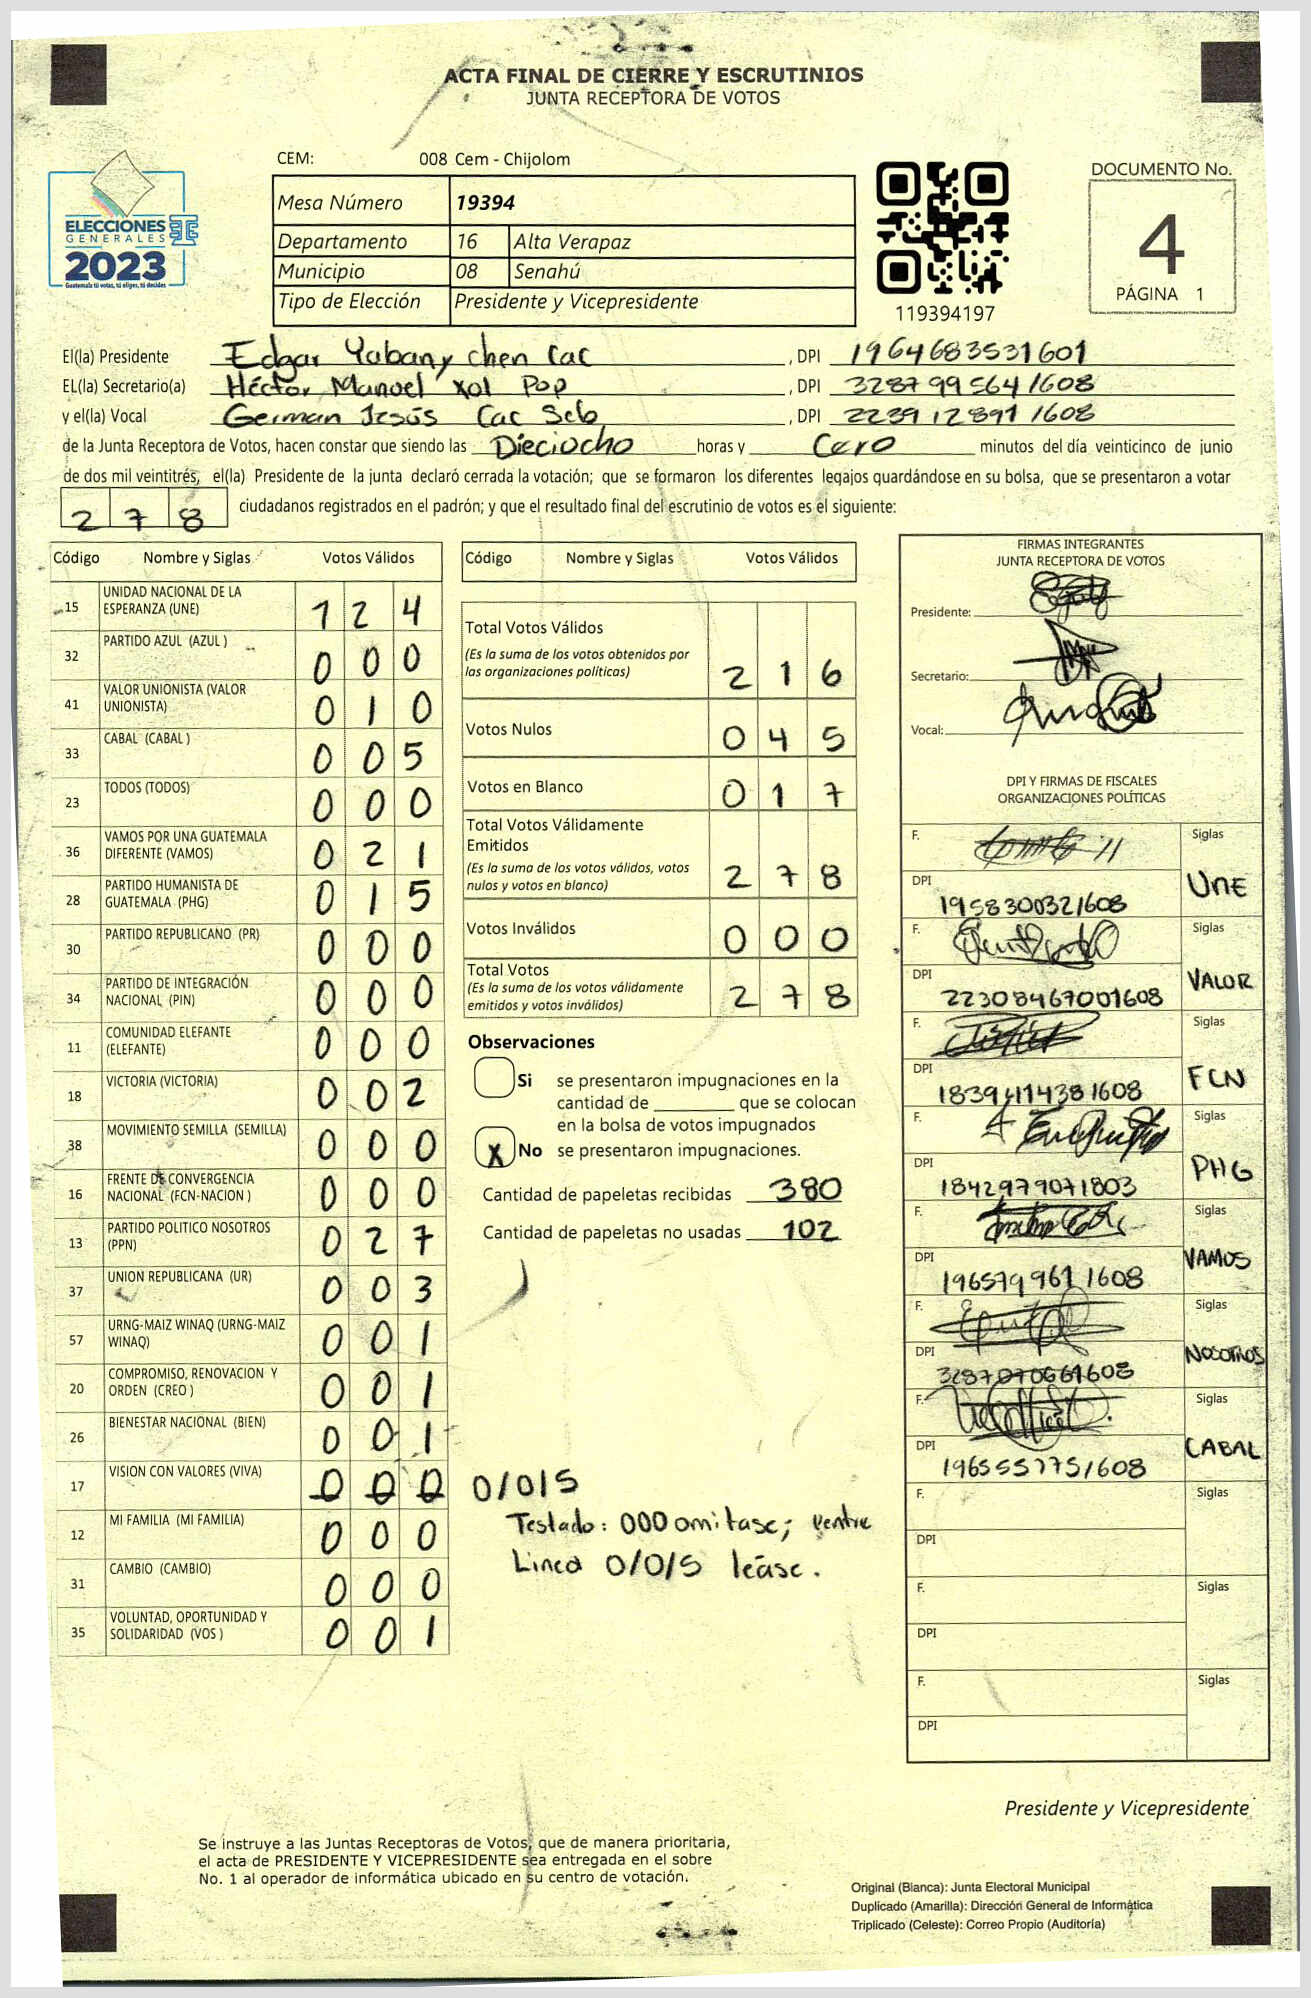 ACTA FINAL DE CIERRE Y ESCRUTINIOS
JUNTA RECEPTORA DE VOTOS
CEM: 008 Cem - Chijolom
ELECCIONES
GENERALES
2023
Guatemala tú votas, tú eliges, tú decides
Mesa Número 19394
Departamento 16 Alta Verapaz
Municipio 08 Senahú
Tipo de Elección Presidente y Vicepresidente
119394197
DOCUMENTO No.
4
PÁGINA 1
El(la) Presidente Edgar Yabany chen Cac, DPI 1964683531601
EL(la) Secretario(a) Héctor Manuel Xol Pop, DPI 3287995641608
y el(la) Vocal German Jesús Cac Seb, DPI 2239128911608
de la Junta Receptora de Votos, hacen constar que siendo las Dieciocho horas y Cero minutos del día veinticinco de junio
de dos mil veintitrés, el(la) Presidente de la junta declaró cerrada la votación; que se formaron los diferentes legajos guardándose en su bolsa, que se presentaron a votar
278 ciudadanos registrados en el padrón; y que el resultado final del escrutinio de votos es el siguiente:
Código Nombre y Siglas Votos Válidos
15 UNIDAD NACIONAL DE LA ESPERANZA (UNE) 1 2 4
32 PARTIDO AZUL (AZUL ) 0 0 0
41 VALOR UNIONISTA (VALOR UNIONISTA) 0 1 0
33 CABAL (CABAL ) 0 0 5
23 TODOS (TODOS) 0 0 0
36 VAMOS POR UNA GUATEMALA DIFERENTE (VAMOS) 0 2 1
28 PARTIDO HUMANISTA DE GUATEMALA (PHG) 0 1 5
30 PARTIDO REPUBLICANO (PR) 0 0 0
34 PARTIDO DE INTEGRACIÓN NACIONAL (PIN) 0 0 0
11 COMUNIDAD ELEFANTE (ELEFANTE) 0 0 0
18 VICTORIA (VICTORIA) 0 0 2
38 MOVIMIENTO SEMILLA (SEMILLA) 0 0 0
16 FRENTE DE CONVERGENCIA NACIONAL (FCN-NACION ) 0 0 0
13 PARTIDO POLITICO NOSOTROS (PPN) 0 2 7
37 UNION REPUBLICANA (UR) 0 0 3
57 URNG-MAIZ WINAQ (URNG-MAIZ WINAQ) 0 0 1
20 COMPROMISO, RENOVACION Y ORDEN (CREO ) 0 0 1
26 BIENESTAR NACIONAL (BIEN) 0 0 1
17 VISION CON VALORES (VIVA) 0 0 0 0/0/5
12 MI FAMILIA (MI FAMILIA) 0 0 0
31 CAMBIO (CAMBIO) 0 0 0
35 VOLUNTAD, OPORTUNIDAD Y SOLIDARIDAD (VOS ) 0 0 1
Código Nombre y Siglas Votos Válidos
Total Votos Válidos
(Es la suma de los votos obtenidos por
las organizaciones políticas) 2 1 6
Votos Nulos 0 4 5
Votos en Blanco 0 1 7
Total Votos Válidamente
Emitidos
(Es la suma de los votos válidos, votos
nulos y votos en blanco) 2 7 8
Votos Inválidos 0 0 0
Total Votos
(Es la suma de los votos válidamente
emitidos y votos inválidos) 2 7 8
Observaciones
Si se presentaron impugnaciones en la
cantidad de ________ que se colocan
en la bolsa de votos impugnados
X No se presentaron impugnaciones.
Cantidad de papeletas recibidas 380
Cantidad de papeletas no usadas 102
Testado: 000 omitase; entre
Linea 0/0/5 léase.
FIRMAS INTEGRANTES
JUNTA RECEPTORA DE VOTOS
Presidente:
Secretario:
Vocal:
DPI Y FIRMAS DE FISCALES
ORGANIZACIONES POLÍTICAS
F. Siglas
DPI 1958300321608 UNE
F. Siglas
DPI 22308467001608 VALOR
F. Siglas
DPI 1839414381608 FCN
F. Siglas
DPI 1842979071803 PHG
F. Siglas
DPI 1965799611608 VAMOS
F. Siglas
DPI 3287070661608 NOSOTROS
F. Siglas
DPI 1965557751608 CABAL
F. Siglas
DPI
F. Siglas
DPI
F. Siglas
DPI
Presidente y Vicepresidente
Se instruye a las Juntas Receptoras de Votos, que de manera prioritaria,
el acta de PRESIDENTE Y VICEPRESIDENTE sea entregada en el sobre
No. 1 al operador de informática ubicado en su centro de votación.
Original (Blanca): Junta Electoral Municipal
Duplicado (Amarilla): Dirección General de Informática
Triplicado (Celeste): Correo Propio (Auditoría)